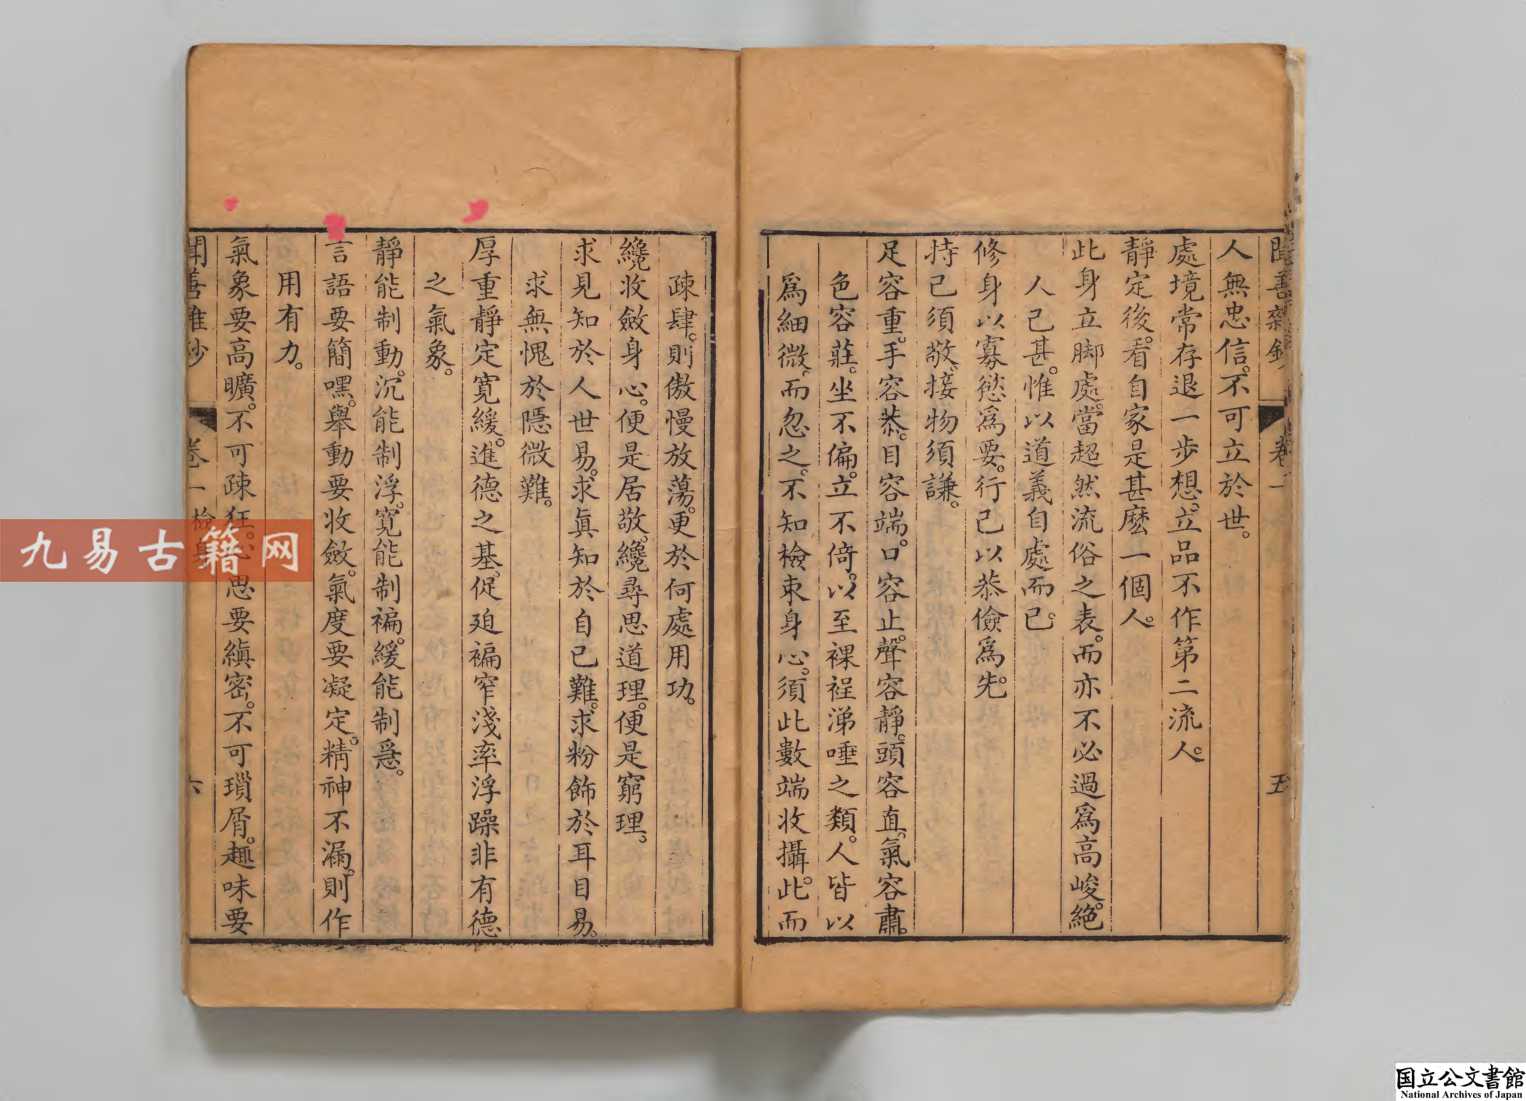 人無忠信。不可立於世。
處境常存退一步想。立品不作第二流人。
靜定後。看自家是甚麽一個人。
此身立脚處。當超然流俗之表。而亦不必過爲高峻。絶
人己甚。惟以道義自處而已。
修身以寡慾爲要。行己以恭儉爲先。
持己須敬。接物須謙。
足容重。手容恭。目容端。口容止。聲容靜。頭容直。氣容肅。
色容莊。坐不偏。立不倚。以至裸裎涕唾之類。人皆以
爲細微。而忽之。不知檢束身心。須此數端收攝。此而
疎肆。則傲慢放蕩。更於何處用功。
纔收斂身心。便是居敬。纔尋思道理。便是窮理。
求見知於人世易。求眞知於自己難。求粉飾於耳目易。
求無愧於隱微難。
厚重靜定寛緩。進德之基。促廹褊窄淺率浮躁。非有德
之氣象。
靜能制動。沉能制浮。寛能制褊。緩能制急。
言語要簡嘿。舉動要收斂。氣度要凝定。精神不漏。則作
用有力。
氣象要高曠。不可疎狂。心思要縝密。不可瑣屑。趣味要
卷一 檢身
六
卷一
五
九易古籍网
国立公文書館
National Archives of Japan